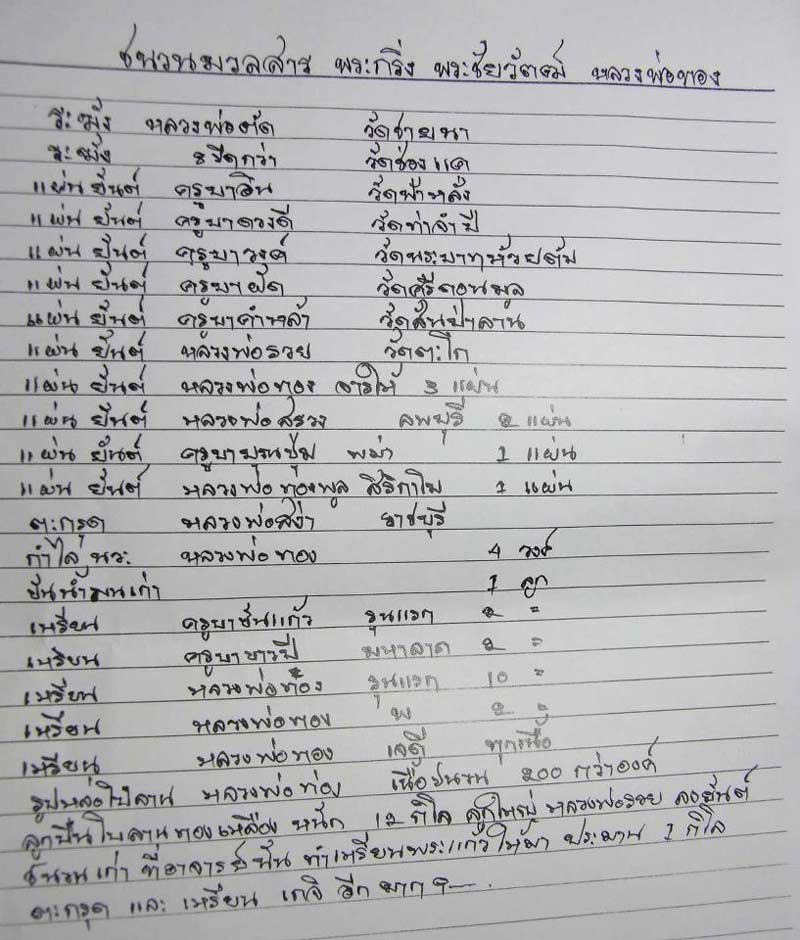 ชนวนมวลสาร พระกริ่ง พระชัยวัฒน์ หลวงพ่อทอง
ระฆัง หลวงพ่อตัด วัดชายนา
ระฆัง 8 ปีกว่า วัดช่องแค
แผ่น ยันต์ ครูบาอิน วัดฟ้าหลั่ง
แผ่น ยันต์ ครูบาดวงดี วัดท่าจำปี
แผ่น ยันต์ ครูบาวงค์ วัดพระบาทห้วยต้ม
แผ่น ยันต์ ครูบาผัด วัดศรีดอนมูล
แผ่น ยันต์ ครูบาคำหล้า วัดสันป่าลาน
แผ่น ยันต์ หลวงพ่อรวย วัดตะโก
แผ่น ยันต์ หลวงพ่อทอง จารให้ 3 แผ่น
แผ่น ยันต์ หลวงพ่อสรวง ลพบุรี 2 แผ่น
แผ่น ยันต์ ครูบาบุญชุ่ม พม่า 1 แผ่น
แผ่น ยันต์ หลวงพ่อทองพูล สิริกาโม 1 แผ่น
ตะกรุด หลวงพ่อสง่า ราชบุรี
กำไล นวะ หลวงพ่อทอง 4 วงศ์
ขันน้ำมนเก่า 1 ลูก
เหรียน ครูบาชันแก้ว รุนแรก 2 "
เหรียน ครูบาขาวปี มหาลาด 2 "
เหรียน หลวงพ่อทอง รุ่นแรก 10 "
เหรียน หลวงพ่อทอง พ 2 "
เหรียน หลวงพ่อทอง เจดี ทุกเนื้อ
รูปหล่อโบลาน หลวงพ่อทอง เนื้อชนวน 200 กว่าองค์
ลูกปืนโบลานทองเหลือง หนัก 12 กิโล ลูกใหญ่ หลวงพ่อรวย ลงยันต์
ชนวนเก่า ที่อาจารย์ปั้น ทำเหรียนพระแก้วให้มา ประมาน 1 กิโล
ตะกรุด และ เหรียน เกจิ อีก มาก ๆ